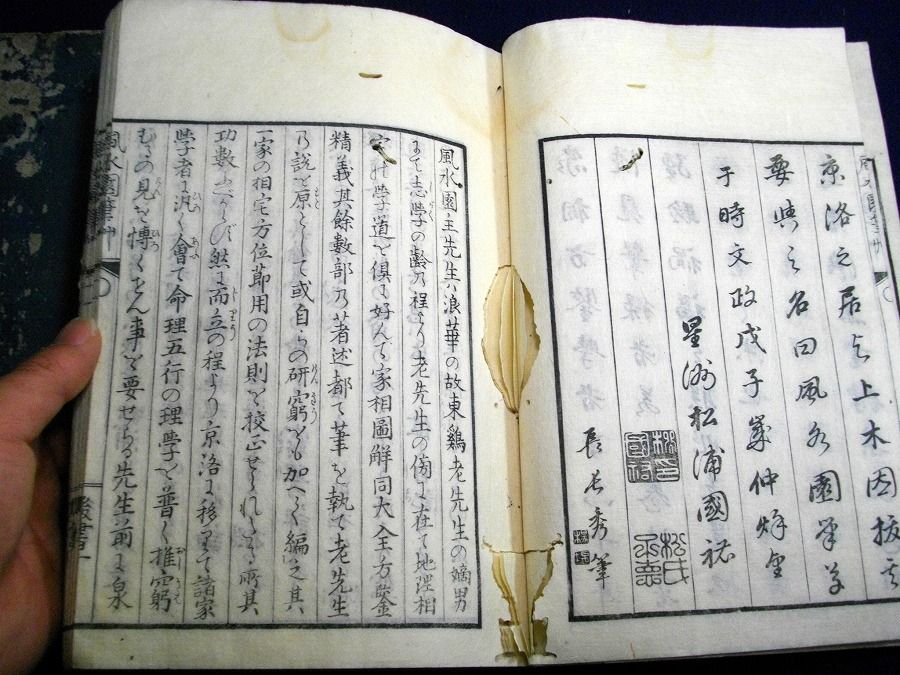 京洛之居 上木因抜其
要與之名曰風水園筆草
于時文政戊子歳仲
星洲松浦國祐
秀筆
風水園主先生ハ浪華の故東鶏老先生の嫡男
にて志學の齢の程より老先生の傍に在て地理相
宅の學道を倶に好んで家相圖解同大全方鑒
精義其餘數部の著述都て筆を執て老先生
の説を原として或自らの研窮をも加へて編之其
一家の相宅方位節用の法則を校正せられたり所其
功數 然に而立の程より京洛に移りて諸家
學者に汎く會て命理五行の理學を普く推窮
見を博くせん事を要せらる先生前に泉
風水園筆草
後書一